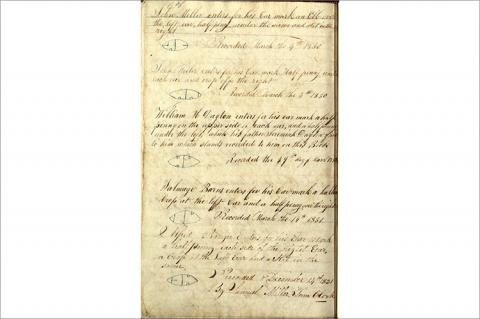 John Miller enters for his Ear mark an Ell
the left ear, half penny under the same and slit in the
right
Recorded March the 4th 1850
enters for his Ear mark Half penny
each ear and crop off the right
Recorded March the 4th 1850
William H Dayton enters for his ear mark a half
penny on the upper side each ear, and a half penny
under the left which his father Jeremiah Dayton
to him which stands recorded to him on this Book
Recorded the day of
Talmage Barns enters for his Ear mark a hollow
Crop at the left Ear and a half penny over the right
Recorded March the 1851
for his Ear Mark
a half penny each side of the right Ear,
a Crop at the left Ear and a Slit in the
same
Recorded December 14th 1851
By Samuel Miller Town Clerk